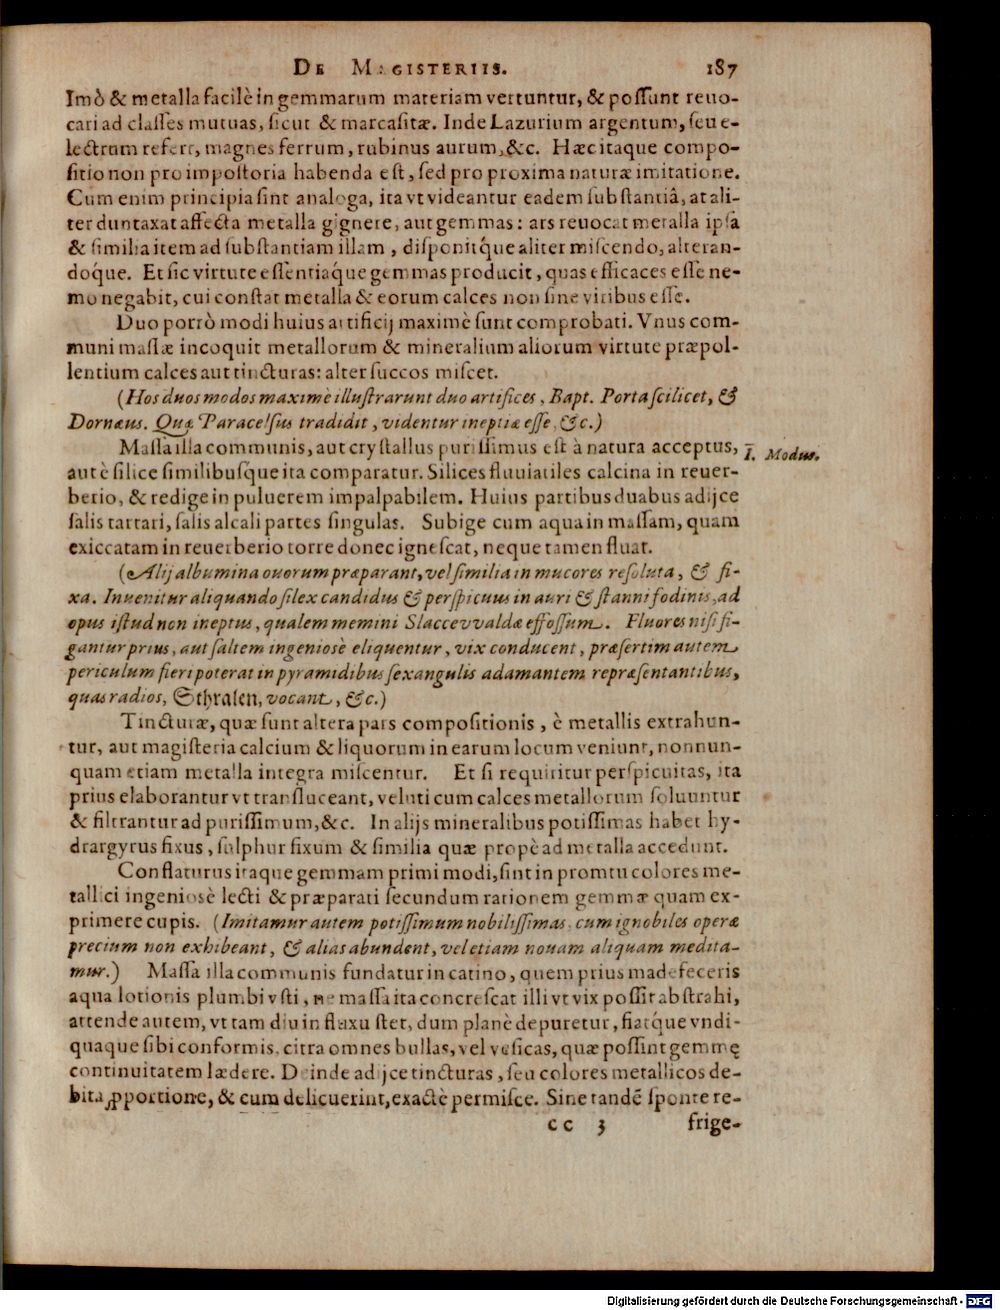 DE MAGISTERIIS. 187
Imò & metalla facilè in gemmarum materiam vertuntur, & possunt reuo-
cari ad classes mutuas, sicut & marcasitæ. Inde Lazurium argentum, seu e-
lectrum refert, magnes ferrum, rubinus aurum, &c. Hæc itaque compo-
sitio non pro impostoria habenda est, sed pro proxima naturæ imitatione.
Cum enim principia sint analoga, ita vt videantur eadem substantiâ, at ali-
ter duntaxat affecta metalla gignere, aut gemmas: ars reuocat metalla ipsa
& similia item ad substantiam illam, disponitq́ue aliter miscendo, alteran-
doq́ue. Et sic virtute essentiaq́ue gemmas producit, quas efficaces esse ne-
mo negabit, cui constat metalla & eorum calces non sine viribus esse.
Duo porrò modi huius artificij maximè sunt comprobati. Vnus com-
muni massæ incoquit metallorum & mineralium aliorum virtute præpol-
lentium calces aut tincturas: alter succos miscet.
(Hos duos modos maximè illustrarunt duo artifices, Bapt. Porta scilicet, &
Dornæus. Quæ Paracelsus tradidit, videntur ineptiæ esse, &c.)
Massa illa communis, aut crystallus purissimus est à natura acceptus,
I. Modus.
autè silice similibusque ita comparatur. Silices fluuiatiles calcina in reuer-
berio, & redige in puluerem impalpabilem. Huius partibus duabus adijce
salis tartari, salis alcali partes singulas. Subige cum aqua in massam, quam
exiccatam in reuerberio torre donec ignescat, neque tamen fluat.
(Alij albumina ouorum præparant, vel similia in mucores resoluta, & fi-
xa. Inuenitur aliquando silex candidus & perspicuus in auri & stanni fodinis, ad
opus istud non ineptus, qualem memini Slaccevvaldæ effossum. Fluores nisi fi-
gantur prius, aut saltem ingeniosè eliquentur, vix conducent, præsertim autem
periculum fieri poterat in pyramidibus sexangulis adamantem repræsentantibus,
quas radios, Sthralen, vocant, &c.)
Tincturæ, quæ sunt altera pars compositionis, è metallis extrahun-
tur, aut magisteria calcium & liquorum in earum locum veniunt, nonnun-
quam etiam metalla integra miscentur. Et si requiritur perspicuitas, ita
prius elaborantur vt transluceant, veluti cum calces metallorum soluuntur
& filtrantur ad purissimum, &c. In alijs mineralibus potissimas habet hy-
drargyrus fixus, sulphur fixum & similia quæ propè ad metalla accedunt.
Conflaturus itaque gemmam primi modi, sint in promtu colores me-
tallici ingeniosè lecti & præparati secundum rationem gemmæ quam ex-
primere cupis. (Imitamur autem potissimum nobilissimas, cum ignobiles operæ
precium non exhibeant, & alias abundent, vel etiam nouam aliquam medita-
mur.) Massa illa communis fundatur in catino, quem prius madefeceris
aqua lotionis plumbi vsti, ne massa ita concrescat illi vt vix possit abstrahi,
attende autem, vt tam diu in fluxu stet, dum planè depuretur, fiatq́ue vndi-
quaque sibi conformis, citra omnes bullas, vel vesicas, quæ possint gemmę
continuitatem lædere. Deinde adijce tincturas, seu colores metallicos de-
bita ꝓportione, & cum delicuerint, exactè permisce. Sine tandẽ sponte re-
cc 3 frige-
Digitalisierung gefördert durch die Deutsche Forschungsgemeinschaft - DFG